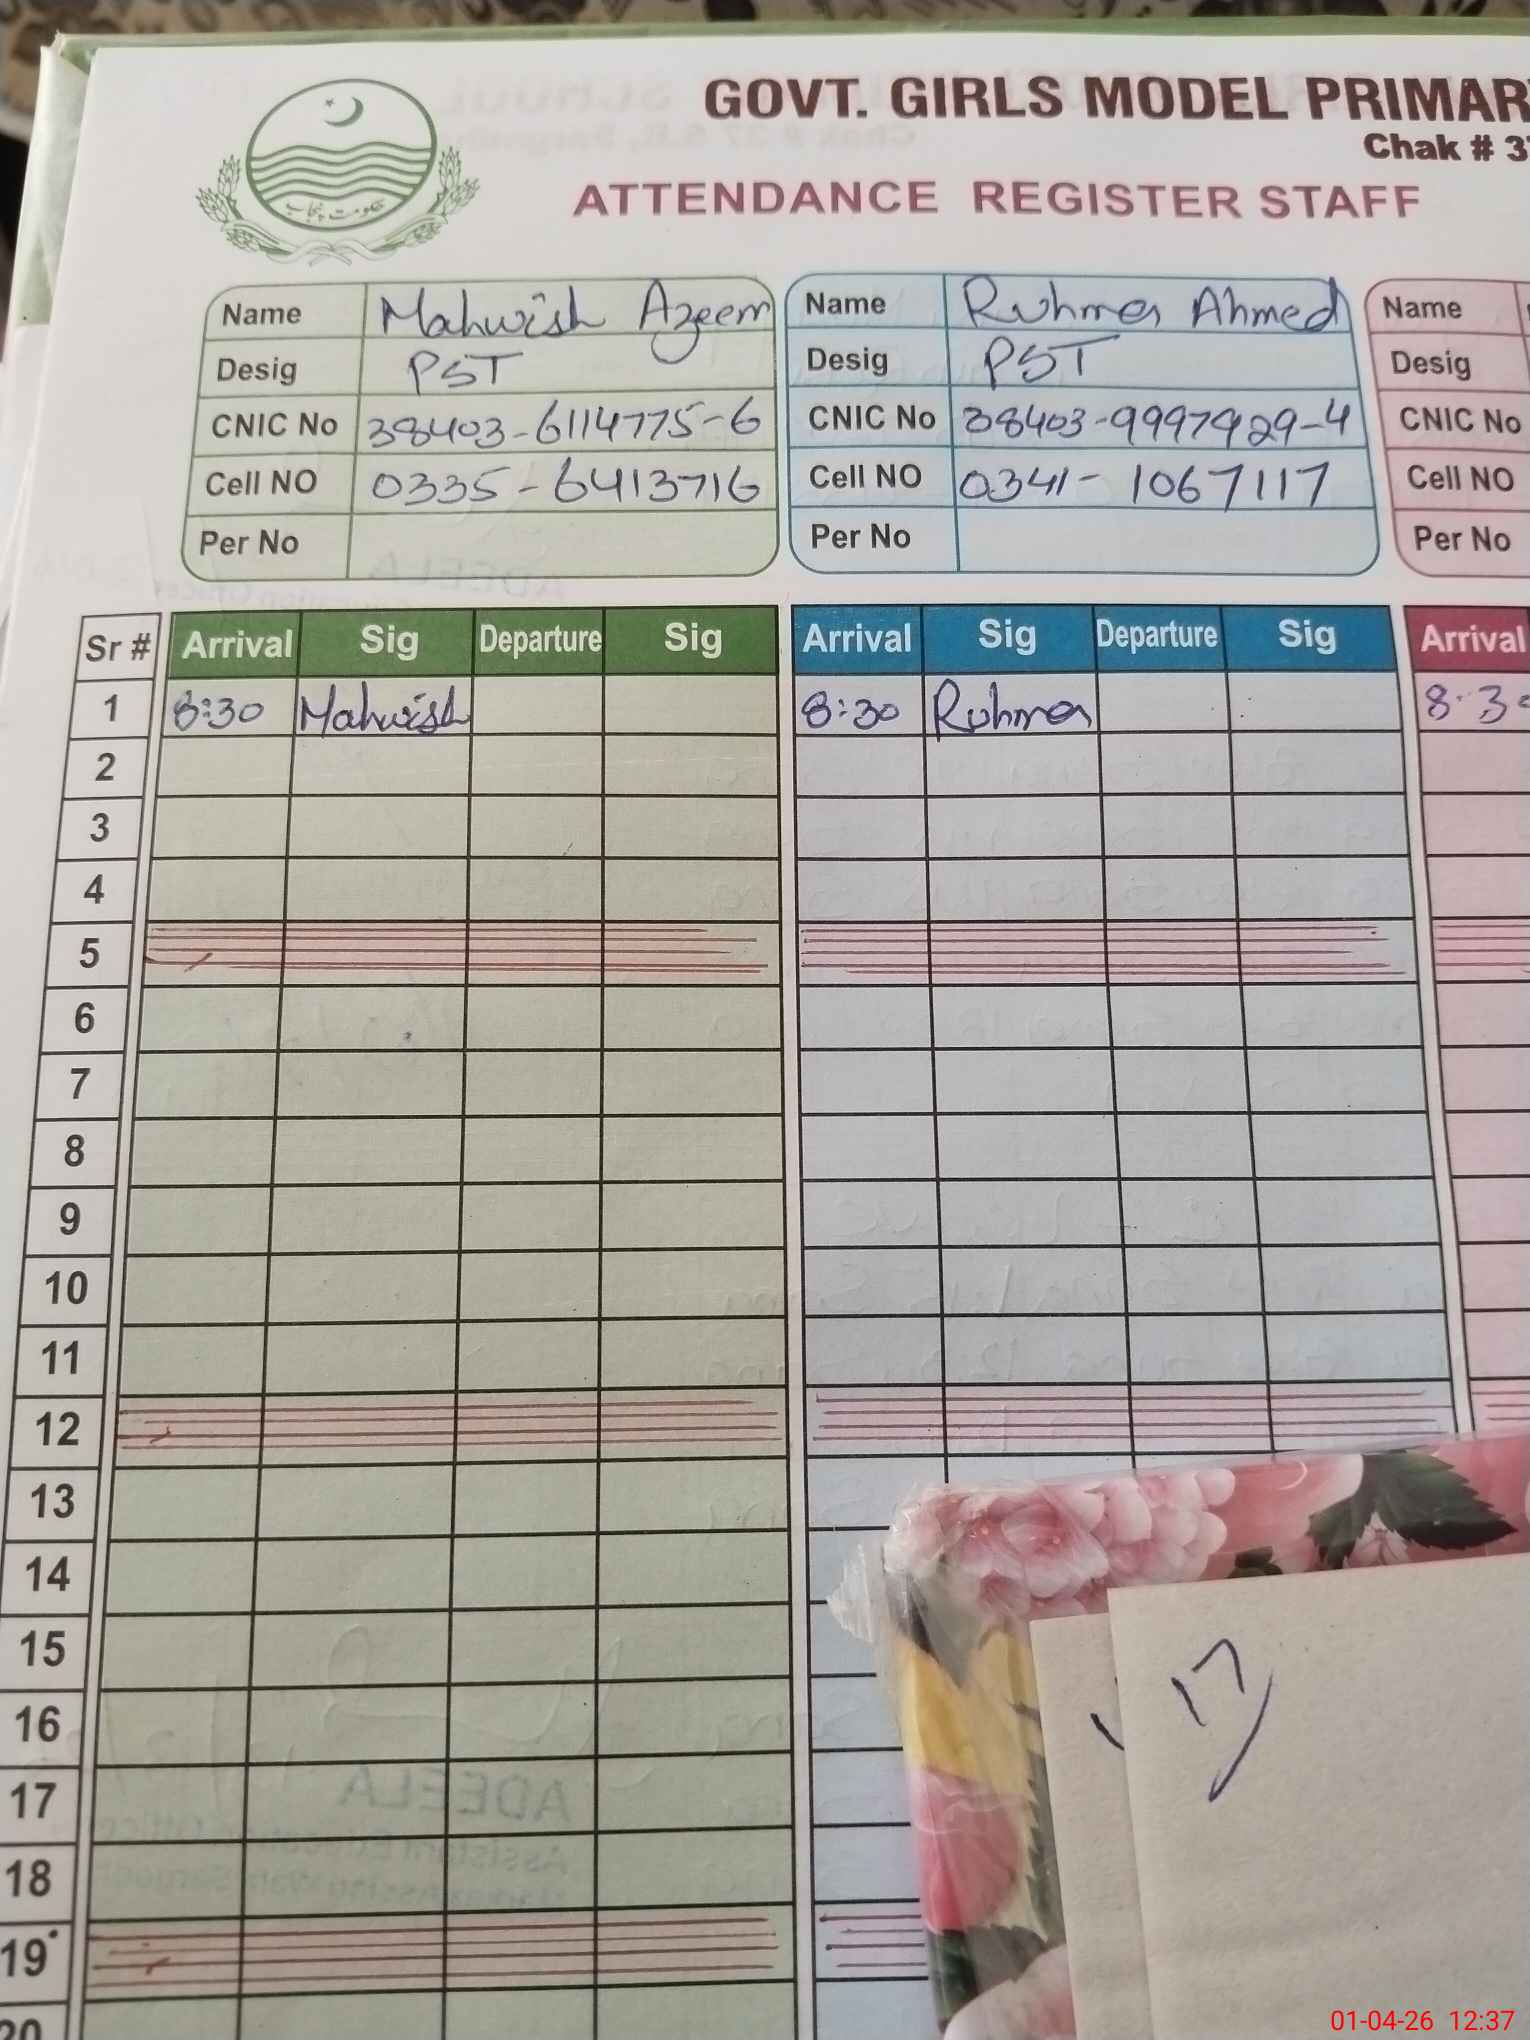 حکومت پنجاب
GOVT. GIRLS MODEL PRIMAR
Chak # 37
ATTENDANCE REGISTER STAFF
Name Mahwish Azeem Name Ruhma Ahmed Name
Desig PST Desig PST Desig
CNIC No 38403-6114775-6 CNIC No 38403-9997929-4 CNIC No
Cell NO 0335-6413716 Cell NO 0341-1067117 Cell NO
Per No Per No Per No
Sr # Arrival Sig Departure Sig Arrival Sig Departure Sig Arrival
1 8:30 Mahwish 8:30 Ruhma 8:3
2
3
4
5
6
7
8
9
10
11
12
13
14
15
16
17
18
19
20
01-04-26 12:37